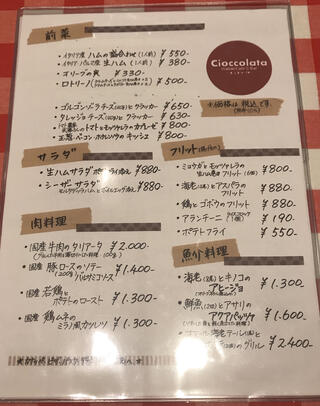 前菜
・イタリア産 ハムの盛合わせ(1人前) ¥550-
・イタリア パルマ産 生ハム(1人前) ¥380-
・オリーブの実 ¥330-
・ロトリーノ ¥500-
・ゴルゴンゾーラチーズ とクラッカー ¥650-
・タレッジョチーズ とクラッカー ¥630
トマトとモッツァレラのカプレーゼ ¥800-
・玉葱・ベーコン・ホウレンソウのキッシュ ¥800-
Cioccolata
※価格は税込です。
サラダ
・生ハムサラダ ポーチドエッグ添え ¥880-
・シーザーサラダ ¥880-
フリット
・ミョウガとモッツァレラの
生ハム巻フリット(6個) ¥800-
・海老(2尾)とアスパラの
フリット ¥880-
・鶏とゴボウのフリット ¥880-
・アランチーニ (1個) ¥190
・ポテトフライ ¥550
肉料理
・国産 牛肉のタリアータ ¥2.000-
・国産 豚ロースのソテー
(200g) バルサミコソース ¥1.400-
・国産 若鶏と
ポテトのロースト ¥1.300-
・国産 鶏ムネの
ミラノ風カツレツ ¥1.300-
魚介料理
・海老 とキノコの
アヒージョ ¥1.300
・鮮魚 とアサリの
アクアパッツァ ¥1.600-
のグリル ¥2400-